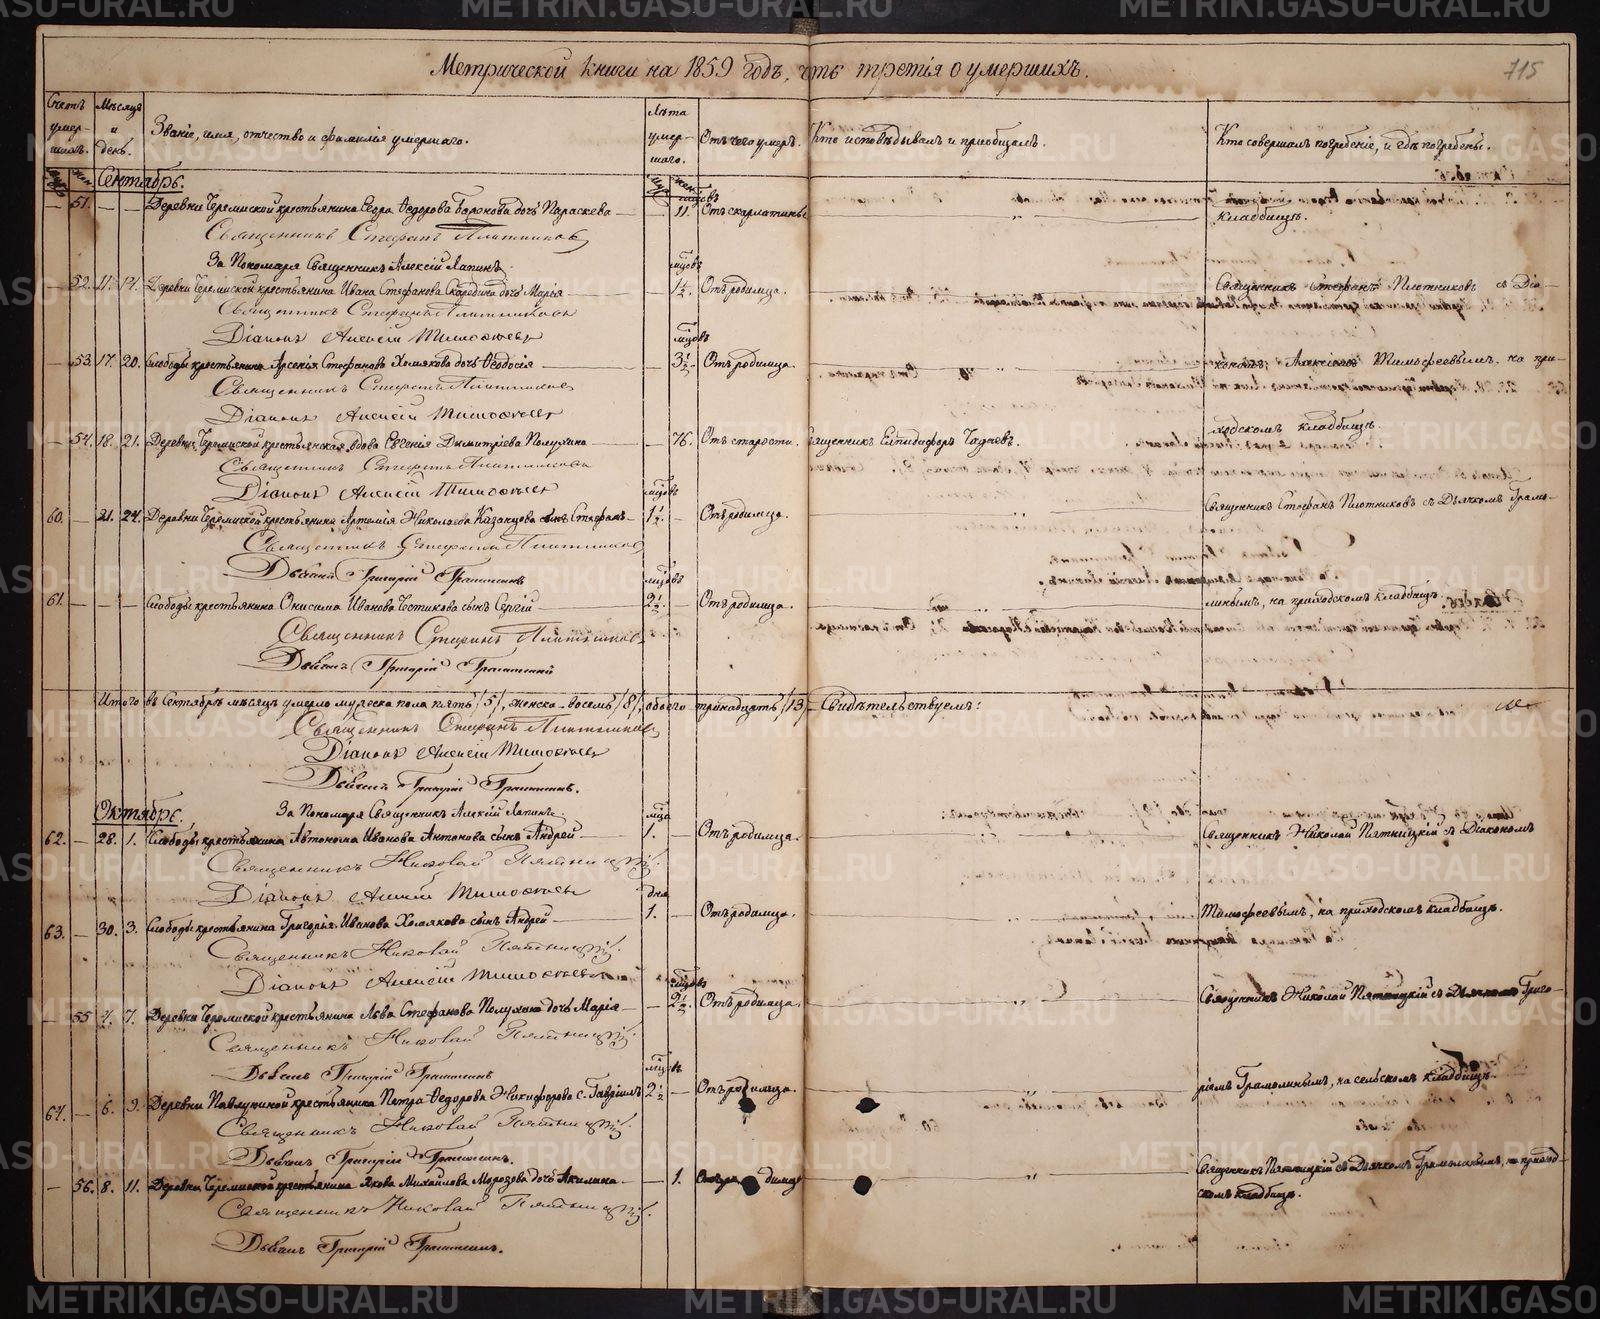 METRIKI.GASO-URAL.RU
Метрической книги на 1859 годъ, часть третія о умершихъ.
715
Счетъ умер-шихъ.
Мѣсяцъ и день.
Званіе, имя, отчество и фамилія умершаго.
Лѣта умер-шаго.
Отъ чего умеръ.
Кто исповѣдывалъ и пріобщалъ.
Кто совершалъ погребеніе, и гдѣ погребены.
Сентябрь.
51. — — Деревни Черемиской крестьянина Егора Ѳедорова дочь Параскева — 11. Отъ скарлатины
кладбищѣ.
Священникъ Стефанъ Плотниковъ
За Пономаря Священникъ Алексій Лапинъ
мцовъ
52. 11. 14. Деревни Черемиской крестьянина Ивана Стефанова дочь Марія — 1½. Отъ родимца.
Священникъ Стефанъ Плотниковъ съ Діа-
Священникъ Стефанъ Плотниковъ
Діаконъ Алексій Тимофеевъ
мцовъ
53. 17. 20. Слободы крестьянина Арсенія Стефанова Хомякова дочь Ѳеодосія — 3½. Отъ родимца.
кономъ Алексіемъ Тимофеевымъ, на при-
Священникъ Стефанъ Плотниковъ
Діаконъ Алексій Тимофеевъ
ходскомъ кладбищѣ
54. 18. 21. Деревни Черемиской крестьянская вдова Евгенія Дымитріева Полухина — 76. Отъ старости. Священникъ Епидифоръ Чадаевъ.
Священникъ Стефанъ Плотниковъ
Діаконъ Алексій Тимофеевъ
мцовъ
60. — 21. 24. Деревни Черемиской крестьянина Артемія Николаева Казанцова сынъ Стефанъ — 1½. — Отъ родимца.
Священникъ Стефанъ Плотниковъ съ Дьячкомъ Грамо-
Священникъ Стефанъ Плотниковъ
Дьячекъ Григорій Грамолинъ
мцовъ
61. — — — Слободы крестьянина Онисима Иванова сынъ Сергій — 2½. — Отъ родимца.
линымъ, на приходскомъ кладбищѣ.
Священникъ Стефанъ Плотниковъ
Дьячекъ Григорій Грамолинъ
Итого въ Сентябрѣ мѣсяцѣ умерло мужеска пола пять /5/, женска — восемь /8/, обоего — тринадцать /13/. — Свидѣтельствуемъ:
Священникъ Стефанъ Плотниковъ
Діаконъ Алексій Тимофеевъ
Дьячекъ Григорій Грамолинъ.
Октябрь.
За Пономаря Священникъ Алексій Лапинъ
мца
62. — 28. 1. Слободы крестьянина Автонома Иванова Антонова сынъ Андрей — 1. — Отъ родимца.
Священникъ Николай Пятницкій съ Діакономъ
Священникъ Николай Пятницкій.
Діаконъ Алексій Тимофеевъ
дня
63. — 30. 3. Слободы крестьянина Григорья Иванова Хомякова сынъ Андрей — 1. — Отъ родимца.
Тимофеевымъ, на приходскомъ кладбищѣ.
Священникъ Николай Пятницкій.
Діаконъ Алексій Тимофеевъ
мцовъ
55 4. 7. Деревни Черемиской крестьянина Льва Стефанова Полухина дочь Марія — 2½. Отъ родимца.
Священникъ Николай Пятницкій съ Дьячкомъ Григо-
Священникъ Николай Пятницкій.
Дьячекъ Григорій Грамолинъ
мцовъ
64. — 6. 9. Деревни Павлушиной крестьянина Петра Ѳедорова Никифорова с. Гавріилъ 2½ — Отъ родимца.
ріемъ Грамолинымъ, на сельскомъ кладбищѣ.
Священникъ Николай Пятницкій.
Дьячекъ Григорій Грамолинъ.
56. 8. 11. Деревни Черемиской крестьянина Якова Михайлова Морозова дочь Акилина — 1. Отъ родимца
Священникъ Пятницкій съ Дьячкомъ Грамолинымъ, на приход-
скомъ кладбищѣ.
Священникъ Николай Пятницкій.
Дьячекъ Григорій Грамолинъ.